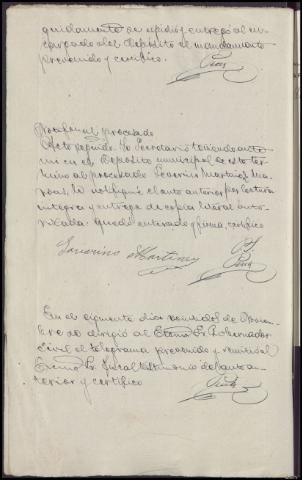 guidamente se expidio y entregó al en
cargado del Depósito el mandamiento
prevenido y certifico.
Notifon al procesado
Acto seguido: Yo Secretario teniendo ante
mi en el Depósito municipal de este ter
mino al procesado Severino Martinez Ma
le notifiqué el auto anterior por lectura
integra y entrega de copia literal auto
rizada: quedó enterado y firma, certifico
Severino Martinez
En el siguiente dia veintidos de
bre se dirigió al Excmo Sr. Gobernador
Civil el telegrama prevenido y remití al
Excmo Sr. Fiscal testimonio del auto an
terior y certifico